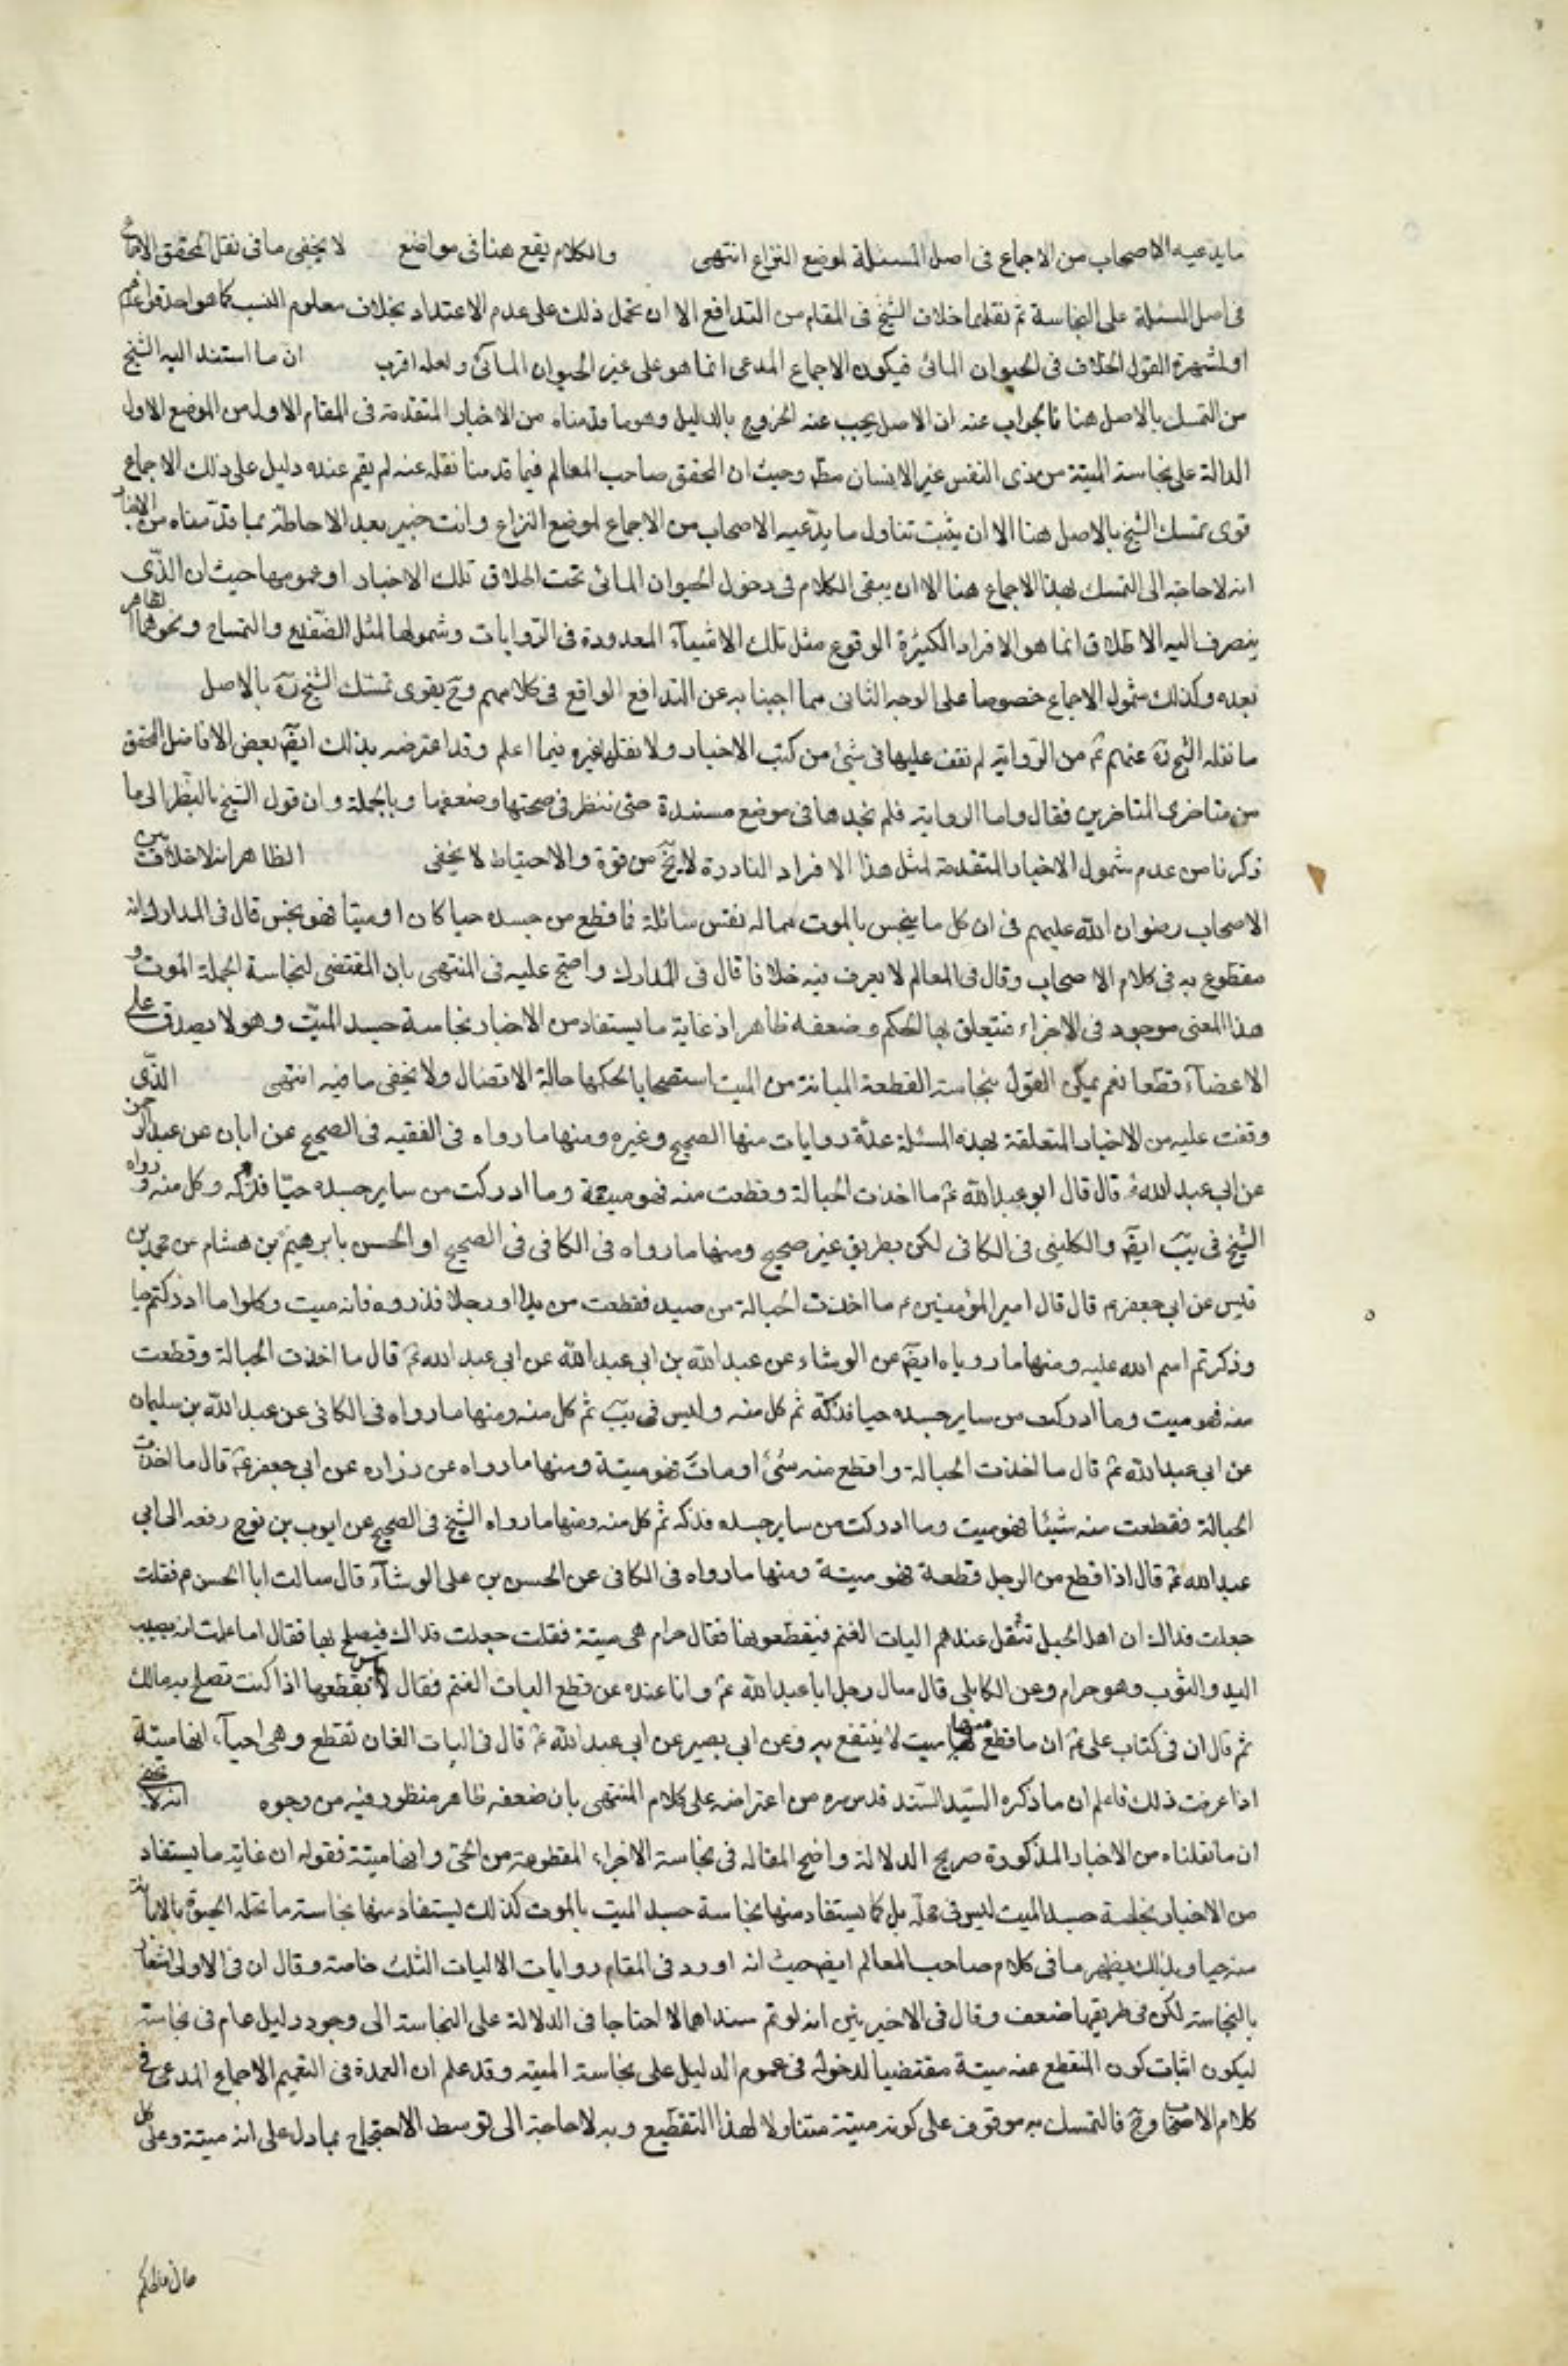 ما يدعيه الاصحاب من الاجماع فى اصل المسئلة لموضع النزاع انتهى والكلام يقع هنا فى مواضع لا يخفى ما فى نقل المحقق الاجماع
فى اصل المسئلة على النجاسة ثم نقله خلاف الشيخ فى المقام من التدافع الا ان يحمل ذلك على عدم الاعتداد بخلاف معلوم النسب كما هو احد قواعدهم
او لشهرة القول الخلاف فى الحيوان المائى فيكون الاجماع المدعى انما هو على غير الحيوان المائى ولعله اقرب ان ما استند اليه الشيخ
من التمسك بالاصل هنا فالجواب عنه ان الاصل يجب عنه الخروج بالدليل وهو ما قدمناه من الاخبار المتقدمة فى المقام الاول من الموضع الاول
الدالة على نجاسة الميتة من ذى النفس غير الانسان مطلقا وحيث ان المحقق صاحب المعالم فيما قدمنا نقله عنه لم يقم عنده دليل على ذلك الا الاجماع
قوى تمسك الشيخ بالاصل هنا الا ان يثبت تناول ما يدّعيه الاصحاب من الاجماع لموضع النزاع وانت خبير بعد الاحاطة بما قدّمناه من الاخبار
انه لا حاجة الى التمسك بهذا الاجماع هنا الا ان يبقى الكلام فى دخول الحيوان المائى تحت اطلاق تلك الاخبار او عمومها حيث ان الذّى
ينصرف اليه الاطلاق انما هو الافراد الكثيرة الوقوع مثل تلك الاشيآء المعدودة فى الرّوايات وشمولها لمثل الضّفدع والتمساح ونحوهما الظاهر
بعده وكذلك شمول الاجماع خصوصا على الوجه الثانى مما اجبنا به عن التدافع الواقع فى كلامهم وح يقوى تمسّك الشيخ ره بالاصل
ما نقله الشيخ ره عنهم ع من الرّواية لم نقف عليها فى شئ من كتب الاخبار ولا نقلها غيره فيما اعلم وقد اعترضه بذلك ايضَ بعض الافاضل المحقق
من متاخرى المتاخرين فقال واما الرواية فلم نجدها فى موضع مسندة حتى ننظر فى صحتها وضعفها وبالجملة وان قول الشيخ بالنظر الى ما
ذكرنا من عدم شمول الاخبار المتقدمة لمثل هذا الافراد النادرة لا يخ من قوة والاحتياط لا يخفى الظاهر انه لا خلاف بين
الاصحاب رضوان الله عليهم فى ان كل ما ينجس بالموت مما له نفس سائلة فما قطع من جسده حيا كان او ميتا فهو نجس قال فى المدارك انه
مقطوع به فى كلام الاصحاب وقال فى المعالم لا يعرف فيه خلافا قال فى المدارك واحتج عليه فى المنتهى بان المقتضى لنجاسة الجملة الموت و
هذا المعنى موجود فى الاجزاء فيتعلق بها الحكم وضعفه ظاهر اذ غاية ما يستفاد من الاخبار نجاسة جسد الميّت وهو لا يصدق على
الاعضآء قطعا نعم يمكن القول بنجاسة القطعة المبانة من الميت استصحابا لحكمها حالة الاتصال ولا يخفى ما فيه انتهى الذّى
وقفت عليه من الاخبار المتعلقة بهذه المسئلة عدّة روايات منها الصحيح وغيره ومنها ما رواه فى الفقيه فى الصحيح عن ابان عن عبد الرحمن
عن ابى عبد الله ع قال قال ابو عبد الله ع ما اخذت الحبالة وقطعت منه فهو ميتة وما ادركت من ساير جسده حيّا فذكه وكل منه ورواه
الشيخ فى يب ايضَ والكلينى فى الكافى لكن بطريق غير صحيح ومنها ما رواه فى الكافى فى الصحيح او الحسن بابرهيم بن هشام عن محمد بن
قيس عن ابى جعفر ع قال قال امير المؤمنين ع ما اخذت الحبالة من صيد فقطعت من يدا او رجلا فذروه فانه ميت وكلوا ما ادركتم حيا
وذكرتم اسم الله عليه ومنها ما روياه ايضَ عن الوشاء عن عبد الله بن ابى عبد الله عن ابى عبد الله ع قال ما اخذت الحبالة وقطعت
منه فهو ميت وما ادركت من ساير جسده حيا فذكّه ثم كل منه وليس فى يب ثم كل منه ومنها ما رواه فى الكافى عن عبد الله بن سليمان
عن ابى عبد الله ع قال ما اخذت الحبالة وانقطع منه شئ او مات فهو ميتة ومنها ما رواه عن زراره عن ابى جعفر ع قال ما اخذت
الحبالة فقطعت منه شيئا فهو ميت وما ادركت من ساير جسده فذكه ثم كل منه ومنها ما رواه الشيخ فى الصحيح عن ايوب بن نوح رفعه الى ابى
عبد الله ع قال اذا قطع من الرجل قطعة فهو ميتة ومنها ما رواه فى الكافى عن الحسن بن على الوشآء قال سالت ابا الحسن ع فقلت
جعلت فداك ان اهل الجبل تثقل عندهم اليات الغنم فيقطعونها فقال حرام هى ميتة فقلت جعلت فداك فيصلح بها فقال اما علمت انه يصيب
اليد والثوب وهو حرام وعن الكاهلى قال سال رجل ابا عبد الله ع وانا عنده عن قطع اليات الغنم فقال لا باس بقطعها اذا كنت تصلح به مالك
ثم قال ان فى كتاب على ع ان ما قطع منها ميت لا ينتفع به وعن ابى بصير عن ابى عبد الله ع قال فى اليات الضان تقطع وهى احيآء انها ميتة
اذا عرفت ذلك فاعلم ان ما ذكره السيّد السّند قدس سره من اعتراضه على كلام المنتهى بان ضعفه ظاهر منظور فيه من وجوه
ان ما نقلناه من الاخبار المذكورة صريح الدلالة واضح المقاله فى نجاسة الاجزاء المقطوعة من الحى وانها ميتة فقوله ان غاية ما يستفاد
من الاخبار نجاسة جسد الميت ليس فى محله بل كما يستفاد منها نجاسة جسد الميت بالموت كذلك يستفاد منها نجاسة ما تحله الحيوة بالابانة
منه حيا وبذلك يظهر ما فى كلام صاحب المعالم ايض حيث انه اورد فى المقام روايات الاليات الثلث خاصة وقال ان فى الاولى اشعارا
بالنجاسة لكن فى طريقها ضعف وقال فى الاخيرتين انه لو تم سنداهما لاحتاجا فى الدلالة على النجاسة الى وجود دليل عام فى نجاسة
ليكون اثبات كون المنقطع عنه ميتة مقتضيا لدخوله فى عموم الدليل على نجاسة الميته وقد علم ان العمدة فى التعميم الاجماع المدعى فى
كلام الاصحاب وح فالتمسك به موقوف على كونه ميتة متناولا لهذا التقطيع وبه لا حاجة الى توسط الاحتجاج بما دل على انه ميتة وعلى كل
حال فالحكم